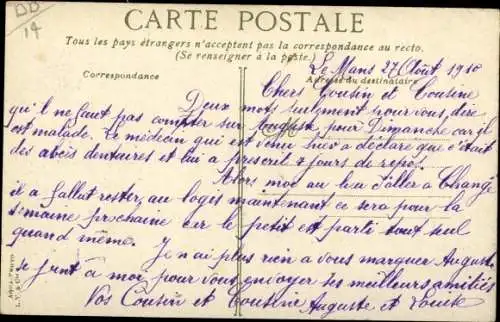 DD
14
CARTE POSTALE
Tous les pays étrangers n'acceptent pas la correspondance au recto.
(Se renseigner à la poste)
Le Mans 27 Août 1910
Correspondance
Adresse du destinataire
Chers Cousin et Cousine
Deux mots seulement pour vous dire
qu'il ne faut pas compter sur Auguste pour Dimanche car il
est malade. Le médecin qui est venu hier a déclaré que c'était
des abcès dentaires et lui a prescrit 8 jours de repos.
Alors moi au lieu d'aller à Changé
il a fallut rester au logis maintenant ce sera pour la
semaine prochaine car le petit est parti tout seul
quand même. Je n'ai plus rien a vous marquer Auguste
se joint a moi pour vous envoyer ses meilleurs amitiés
Vos Cousin et Cousine Auguste et Louise